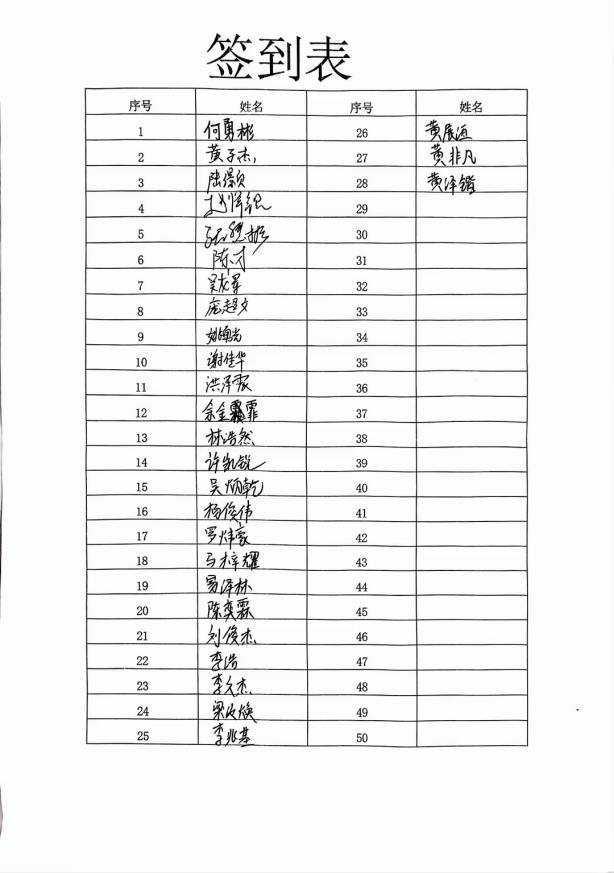 签到表
序号 姓名 序号 姓名
1 何勇彬 26 黄展
2 黄子杰 27 黄非凡
3 陆 28 黄泽锴
4 29
5 30
6 陈才 31
7 吴 32
8 庞超文 33
9 34
10 谢佳华 35
11 洪泽 36
12 余金霏 37
13 林浩然 38
14 许凯锐 39
15 吴炳乾 40
16 杨俊伟 41
17 罗炜豪 42
18 马梓耀 43
19 易泽林 44
20 陈奕霖 45
21 刘俊杰 46
22 李浩 47
23 李文杰 48
24 梁焕 49
25 李兆基 50